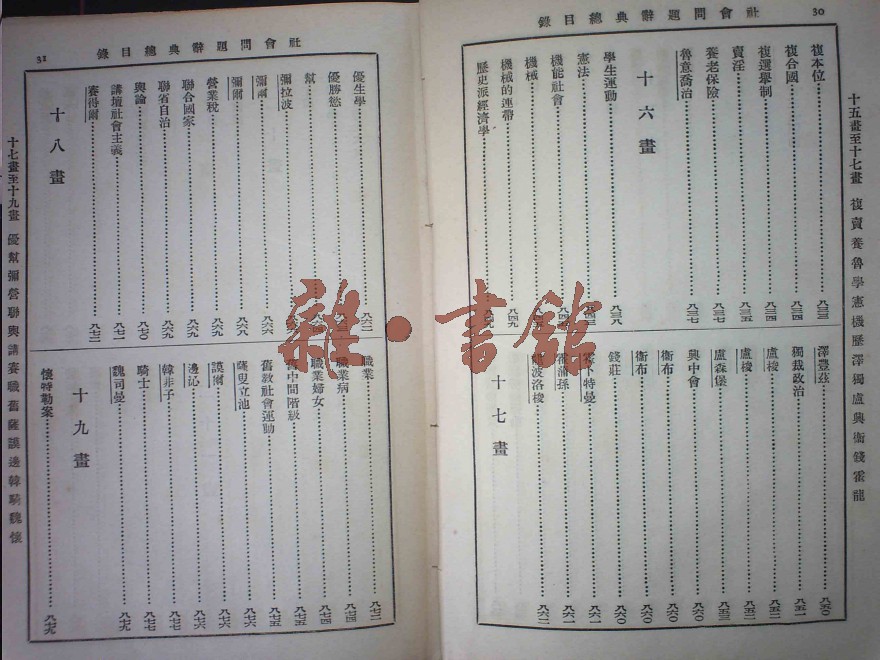 社會問題辭典總目錄
30
十五畫至十七畫 複賣養魯學憲機歷澤獨盧興衞錢霍龍
複本位 八三三
複合國 八三四
複選舉制 八三四
賣淫 八三五
養老保險 八三七
魯意喬治 八三七
十六畫
學生運動 八三八
憲法
機能社會
機械
機械的連帶
歷史派經濟學
澤豐茲 八五〇
獨裁政治 八五一
盧梭 八五二
盧梭
盧森堡
興中會 八六〇
衞布 八六〇
衞布 八六〇
錢莊 八六〇
霍卜特曼 八六一
霍蒲孫 八六一
龍波洛梭 八六二
十七畫
社會問題辭典總目錄
31
十七畫至十九畫 優幫彌營聯輿講賽職舊薩謨邊韓騎魏懷
優生學 八六二
優勝慾
幫
彌拉波
彌爾 八六六
彌爾 八六八
營業稅 八六九
聯合國家 八六九
聯省自治 八六九
輿論 八七〇
講壇社會主義 八七一
賽得爾 八七二
十八畫
職業 八七二
職業病 八七四
職業婦女 八七四
舊中間階級
舊教社會運動 八七五
薩兒立池 八七六
謨爾 八七六
邊沁 八七六
韓非子 八七七
騎士 八七七
魏司曼 八七九
十九畫
懷特勒案 八七九
雜·書館